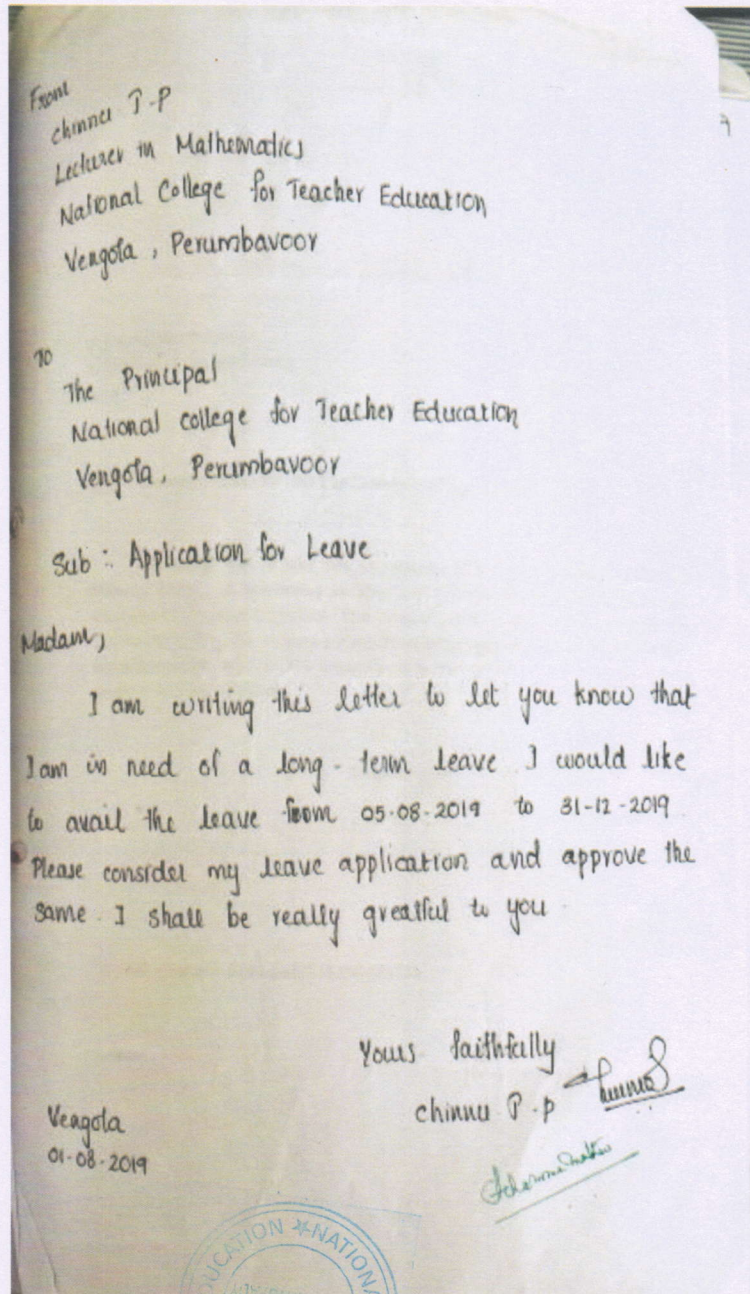 From
Chinnu P.P
Lecturer in Mathematics
National College for Teacher Education
Vengola, Perumbavoor
To
The Principal
National College for Teacher Education
Vengola, Perumbavoor
Sub: Application for Leave
Madam,
I am writing this letter to let you know that
I am in need of a long-term leave. I would like
to avail the leave from 05-08-2019 to 31-12-2019
Please consider my leave application and approve the
same. I shall be really greatful to you.
Yours faithfully
Chinnu P.P
Vengola
01-08-2019
UCATION ★ NATIONA